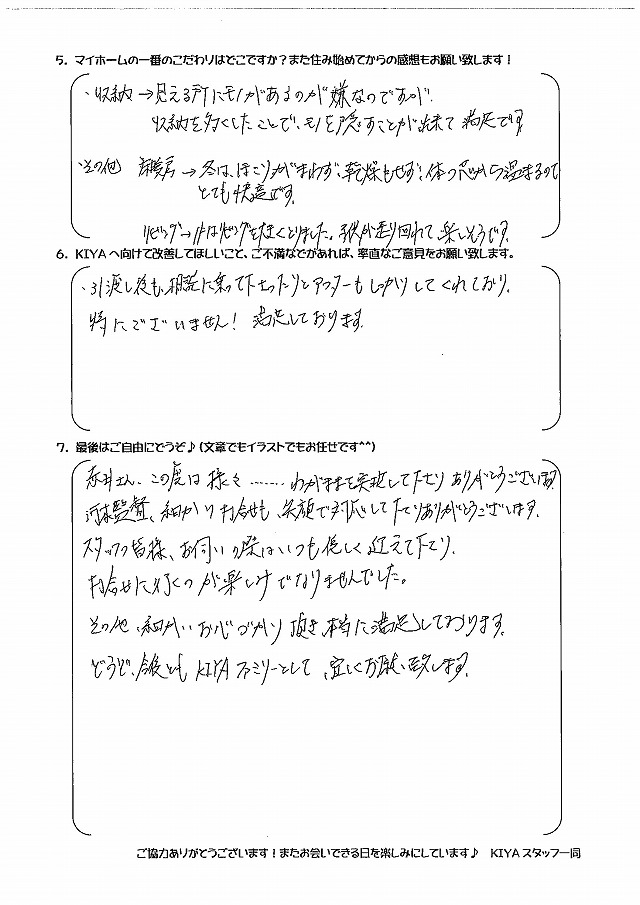 5. マイホームの一番のこだわりはどこですか？また住み始めてからの感想もお願い致します！
・収納→見える所にモノがあるのが嫌なのですが、
収納を多くしたことで、モノを隠すことが出来て満足です。
・その他 床暖房→冬は、ほこりがまわず、乾燥もせず、体の芯から温まるので
とても快適です。
リビング→1Fはリビングを大きくとりました。子供が走り回れて楽しそうです。
6. KIYAへ向けて改善してほしいこと、ご不満などがあれば、率直なご意見をお願い致します。
・引渡し後も、相談に乗って下さったりとアフターもしっかりしてくれており、
特にございません！ 満足しております。
7. 最後はご自由にどうぞ♪(文章でもイラストでもお任せです^^)
赤井さん、この度は様々……わがままを実現して下さりありがとうございます。
監督、細かい打合せも、笑顔で対応して下さりありがとうございます。
スタッフ皆様、お伺いの際はいつも優しく迎えて下さり、
打合せに行くのが楽しみでなりませんでした。
その他、細かいお心づかい頂き、本当に満足しております。
どうぞ、今後ともKIYAファミリーとして、宜しくお願い致します。
ご協力ありがとうございます！またお会いできる日を楽しみにしています♪ KIYAスタッフ一同